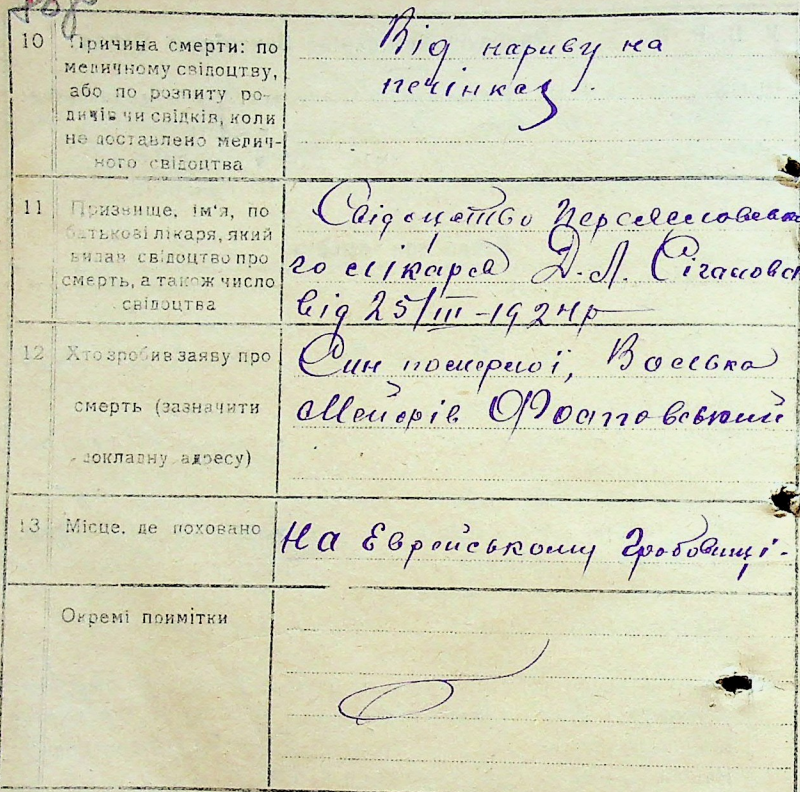 10 Причина смерти: по
медичному свідоцтву,
або по розпиту ро-
дичів чи свідків, коли
не доставлено медич-
ного свідоцтва
Від нариву на
печінках.
11 Призвище, ім'я, по
батькові лікаря, який
видав свідоцтво про
смерть, а також число
свідоцтва
Свідоцтво
го лікаря Д. Л. Сігалова
від 25/III-1924 р
12 Хто зробив заяву про
смерть (зазначити
докладну адресу)
Син померлої,
13 Місце, де поховано
На Еврейському гробовищі.
Окремі примітки